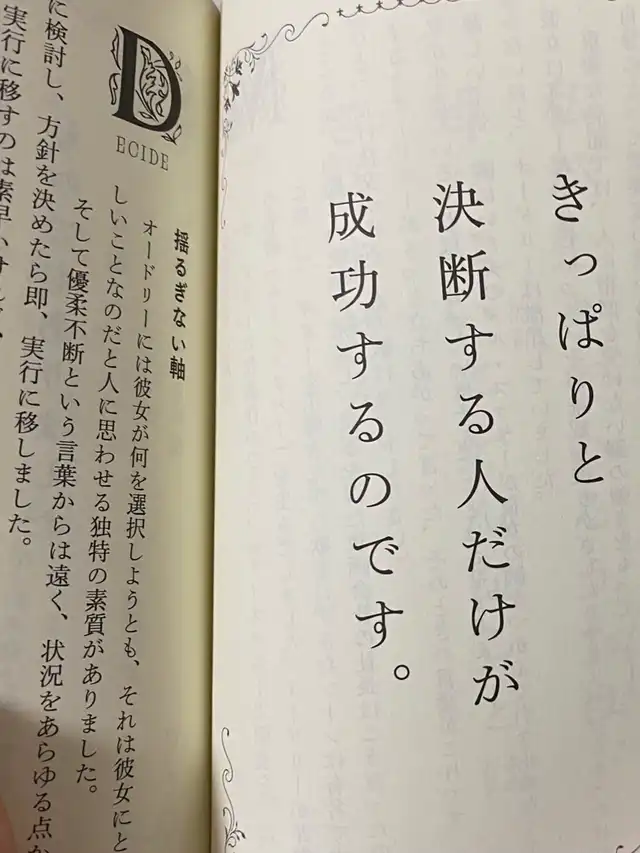 きっぱりと
決断する人だけが
成功するのです。
DECIDE
揺るぎない軸
オードリーには彼女が何を選択しようとも、それは彼女にと
しいことなのだと人に思わせる独特の素質がありました。
そして優柔不断という言葉からは遠く、状況をあらゆる点か
に検討し、方針を決めたら即、実行に移しました。
実行に移すのは素早い